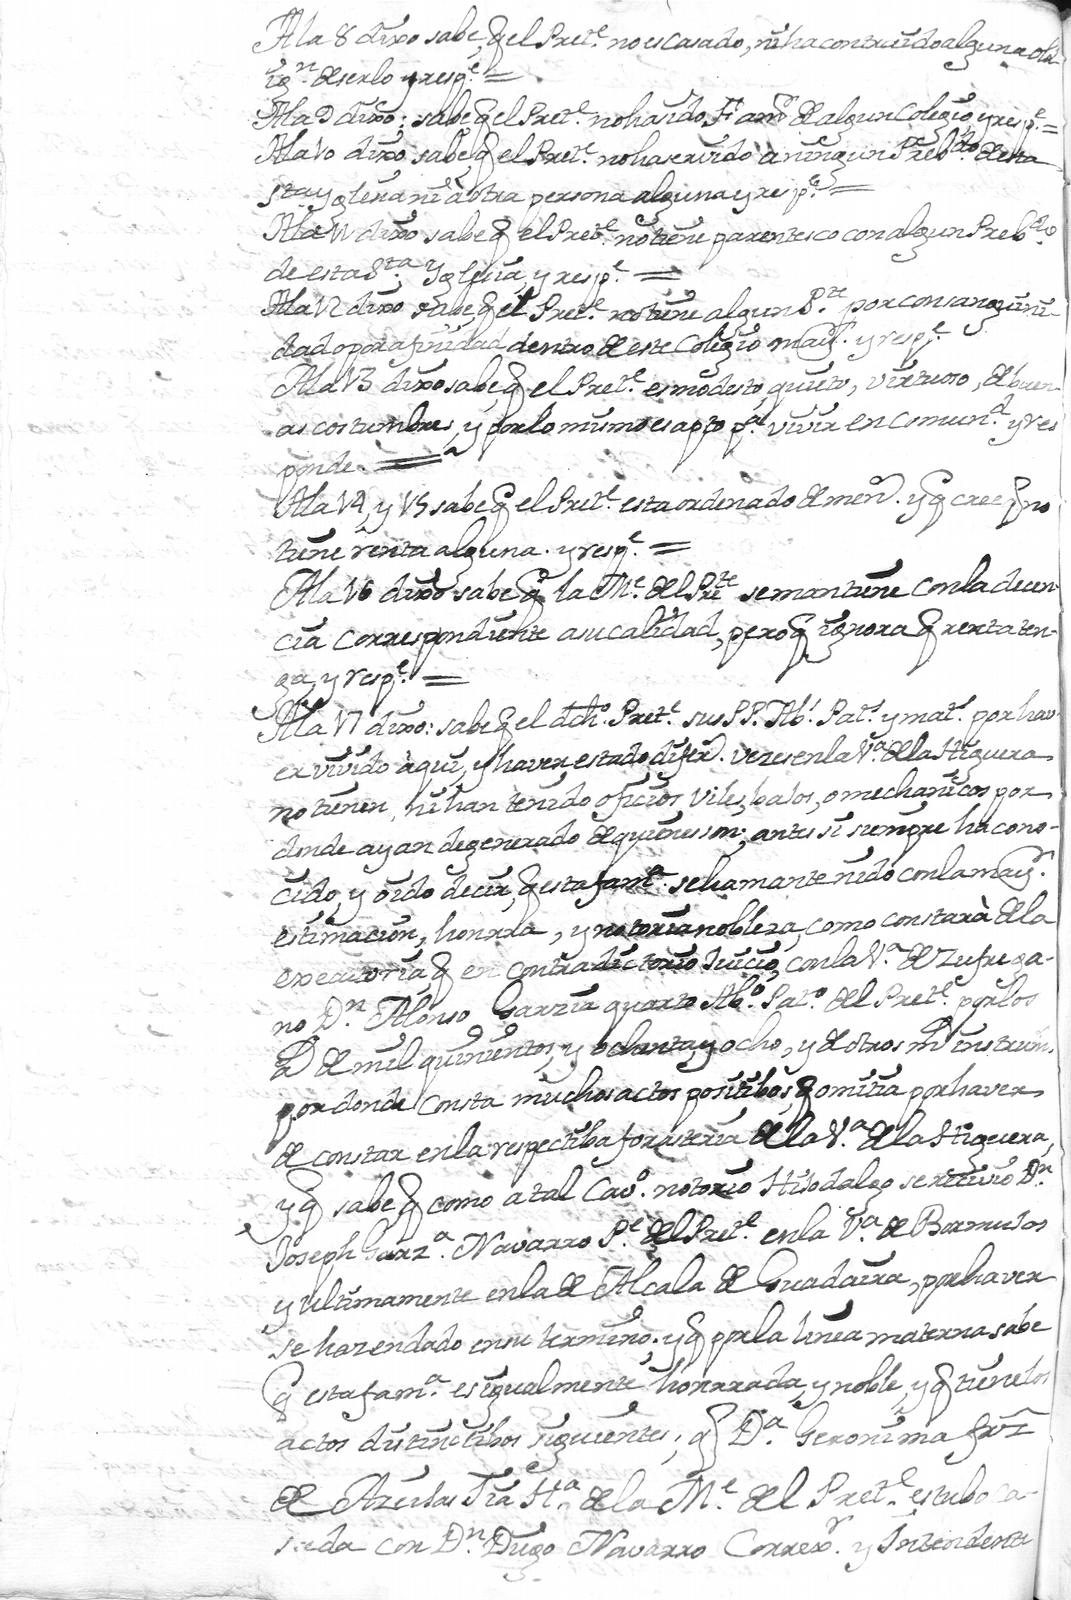 A la 8 dixo sabe, q el Pret.te no es casado, ni ha contraido alguna obli
ig.n de serlo y resp.e =
A la 9 dixo: sabe q el Pret.te no ha sido F. am.r de algun Colegio y resp.e =
A la 10 dixo sabe q el Pret.te no ha servido à ningun Preb.do de esta
Sta yglesia ni à otra persona alguna y resp.e =
A la 11 dixo sabe q el Pret.te no tiene parentesco con algun Preb.do
de esta S.ta Yglesia, y resp.e =
A la 12 dixo sabe q el Pret.te no tiene algun P.te por consanguini
dad o por afinidad dentro de este Colegio may.r y resp.e
A la 13 dixo sabe q el Pret.te es modesto, quieto, virtuoso, de buen-
as costumbres, y por lo mismo es apto p.a vivir en comun.d y res
ponde =
A la 14, y 15 sabe q el Pret.te esta ordenado de men.s y q cree q no
tiene renta alguna. y resp.e =
A la 16 dixo sabe q la M.e del Pr.te se mantiene con la decen-
cia correspondiente a su calidad, pero q ignora q renta ten-
ga, y resp.e =
A la 17 dixo: sabe q el dch.o Pret.te sus PP. Ab.s Pat.s y mat.s por hav-
er vivido aqui, y haver estado difer.s vezes en la V.a de la Higuera
no tienen, ni han tenido oficios viles, bajos, o mechanicos por
donde ayan degenerado de quienes son; antes si siempre ha cono-
cido, y oido decir, q esta fam.a se ha mantenido con la may.r
estimacion, honrra, y notoria nobleza, como constarà de la
executoria q en contradictorio Juicio, con la V.a de Zufre ga-
no D.n Alonso Garzia quarto Ab.o Pat.o del Pret.te por los
a.s de mil quinientos, y ochenta y ocho, y de otros m.s instrum.s
por donde consta muchos actos positibos, q omitia por haver
de constar en la respectiba forasteria de la V.a de la Higuera,
y q sabe q como a tal Cav.o notorio Hijodalgo se recivio D.n
Joseph Garz.a Navarro P.e del Pret.te en la V.a de Bormujos
y ultimamente en la de Alcala de Guadaira, por haver
se hazendado en su termino; y q por la linea materna sabe
q esta fam.a es igualmente honrrada, y noble, y q tiene los
actos distinctibos siguientes; q D.a Geronima
de Azeslas Tia H.a de la M.e del Pret.te estubo ca-
sada con D.n Diego Navarro Correx.r y Intendente